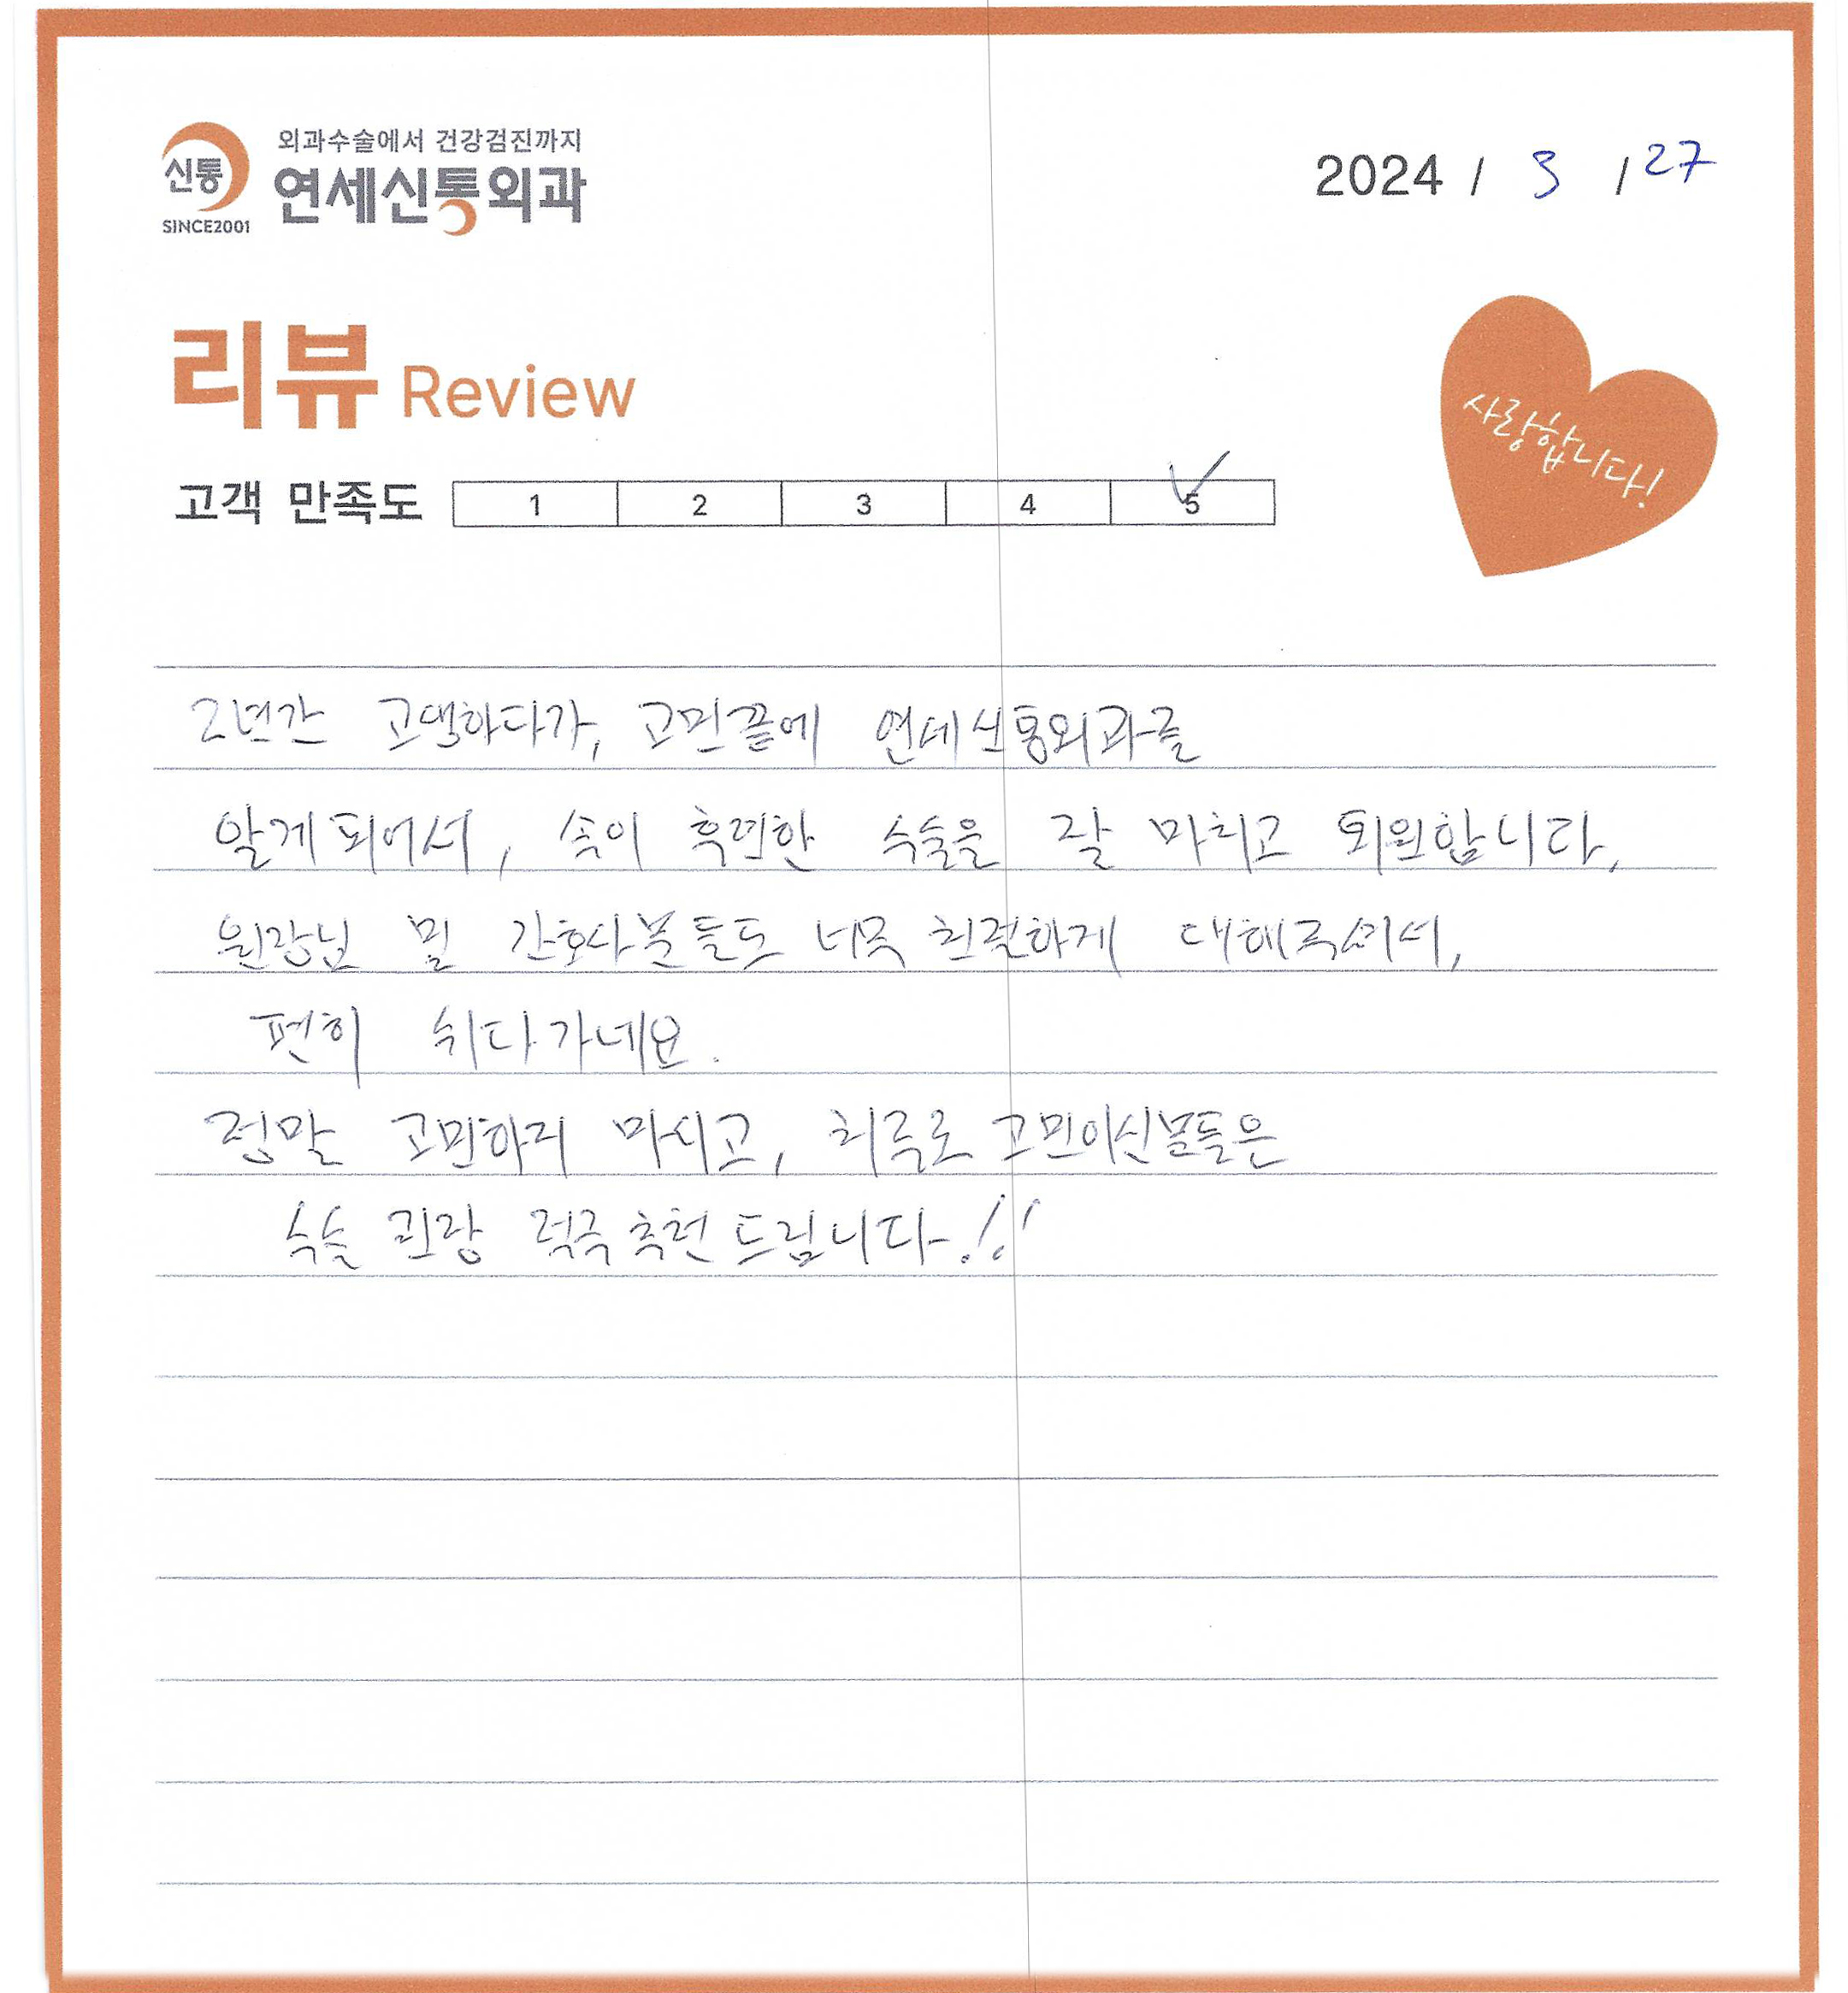 외과수술에서 건강검진까지
신통
연세신통외과
SINCE2001
2024 / 3 / 27
리뷰 Review
사랑합니다!
고객 만족도 1 2 3 4 5
2년간 고생하다가, 고민끝에 연세신통외과를
알게되어서, 속이 후련한 수술을 잘 마치고 퇴원합니다.
원장님 및 간호사분들도 너무 친절하게 대해주셔서,
편히 쉬다가네요.
정말 고민하지 마시고, 치루로 고민이신분들은
수술 적극추천드립니다!!